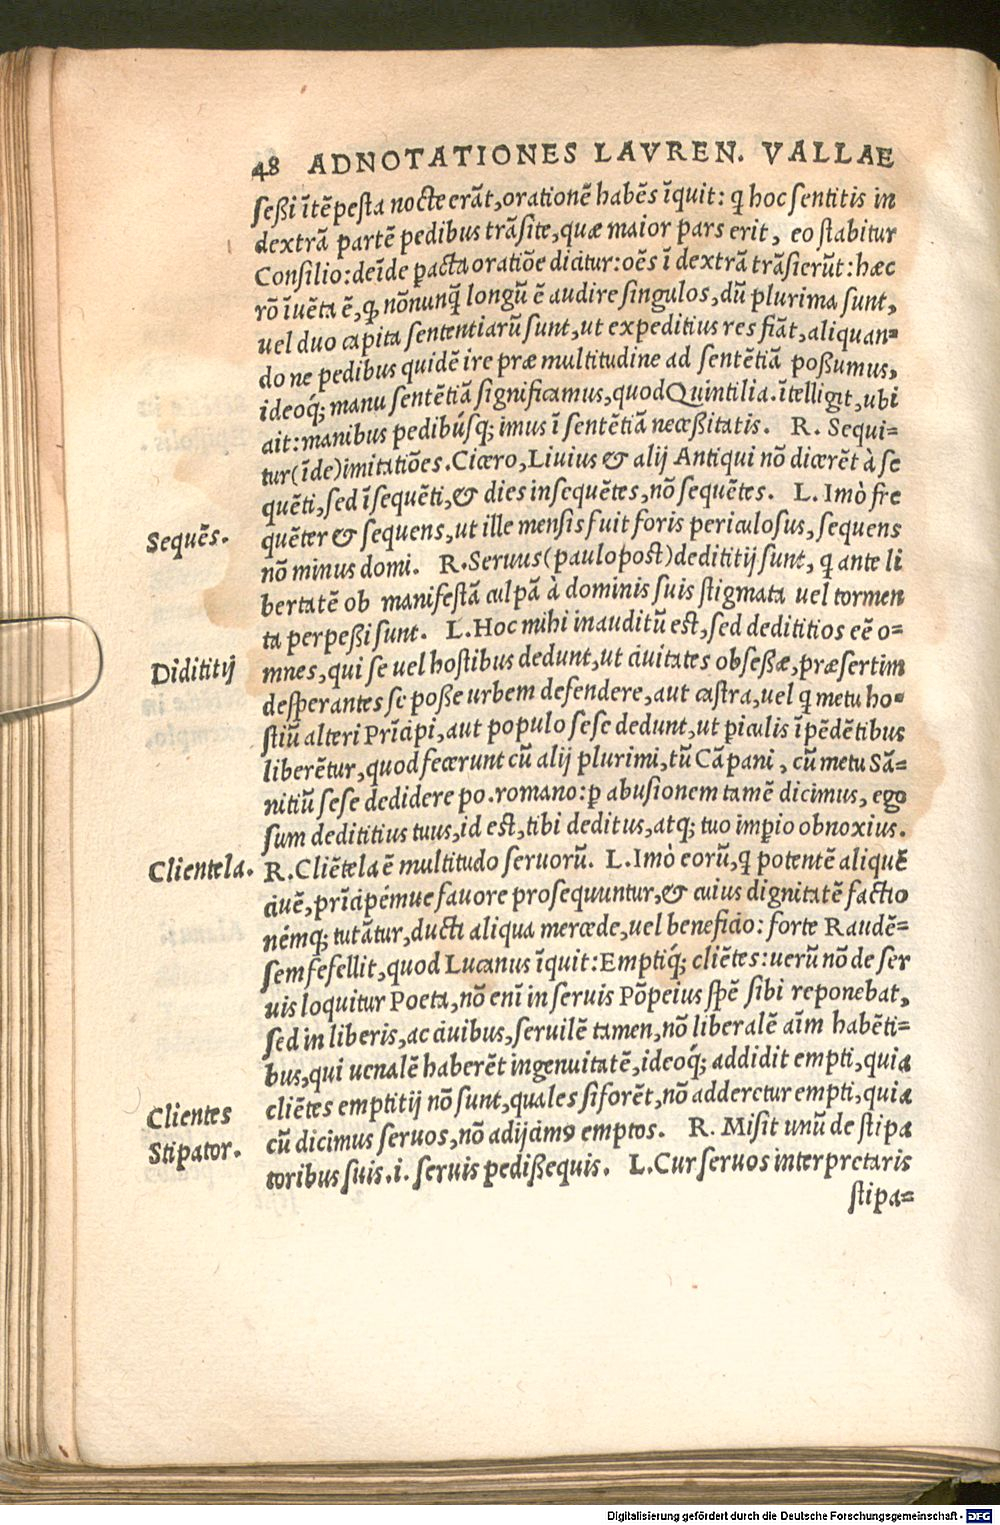 48 ADNOTATIONES LAVREN. VALLAE
seßi ĩtẽpesta nocte erãt, orationẽ habẽs ĩquit: ꝗ hoc sentitis in
dextrã partẽ pedibus trãsite, quæ maior pars erit, eo stabitur
Consilio: deĩde ꝑacta oratiõe dicitur: oẽs ĩ dextrã trãsierũt: hæc
rõ ĩuẽta ẽ, ꝙ nõnunꝗ̃ longũ ẽ audire singulos, dũ plurima sunt,
uel duo capita sententiarũ sunt, ut expeditius res fiãt, aliquan=
do ne pedibus quidẽ ire præ multitudine ad sentẽtiã poßumus,
ideoq́; manu sentẽtiã significamus, quod Quintilia. ĩtelligit, ubi
ait: manibus pedibúsq; imus ĩ sentẽtiã necæßitatis. R. Sequi=
tur (ĩde) imitatiões. Cicero, Liuius & alij Antiqui nõ dicerẽt à se
quẽti, sed ĩsequẽti, & dies insequẽtes, nõ sequẽtes. L. Imò fre
Sequẽs.
quẽter & sequens, ut ille mensis fuit foris periculosus, sequens
nõ minus domi. R. Seruus (paulo post) dedititij sunt, ꝗ ante li
bertatẽ ob manifestã culpã à dominis suis stigmata uel tormen
ta perpeßi sunt. L. Hoc mihi inauditũ est, sed dedititios eẽ o=
Didititij
mnes, qui se uel hostibus dedunt, ut ciuitates obseßæ, præsertim
desperantes se poße urbem defendere, aut castra, uel ꝗ metu ho=
stiũ alteri Prĩcipi, aut populo sese dedunt, ut ꝑiculis ĩpẽdẽtibus
liberẽtur, quod fecerunt cũ alij plurimi, tũ Cãpani, cũ metu Sã=
nitiũ sese dedidere po. romano: ꝑ abusionem tamẽ dicimus, ego
sum dedititius tuus, id est, tibi deditus, atq; tuo imꝑio obnoxius.
Clientela.
R. Cliẽtela ẽ multitudo seruorũ. L. Imò eorũ, ꝗ potentẽ aliquẽ
ciuẽ, prĩcipémue fauore prosequuntur, & cuius dignitatẽ factio
némq; tutãtur, ducti aliqua mercede, uel beneficio: forte Raudẽ=
sem fefellit, quod Lucanus ĩquit: Emptiq́; cliẽtes: uerũ nõ de ser
uis loquitur Poeta, nõ enĩ in seruis Põpeius spẽ sibi reponebat,
sed in liberis, ac ciuibus, seruilẽ tamen, nõ liberalẽ aĩm habẽti=
bus, qui uenalẽ haberẽt ingenuitatẽ, ideoq́; addidit empti, quia
Clientes
cliẽtes emptitij nõ sunt, quales si forẽt, nõ adderetur empti, quia
Stipator.
cũ dicimus seruos, nõ adijcimꝰ emptos. R. Misit unũ de stipa
toribus suis .i. seruis pedißequis. L. Cur seruos interpretaris
stipa=
Digitalisierung gefördert durch die Deutsche Forschungsgemeinschaft - DFG